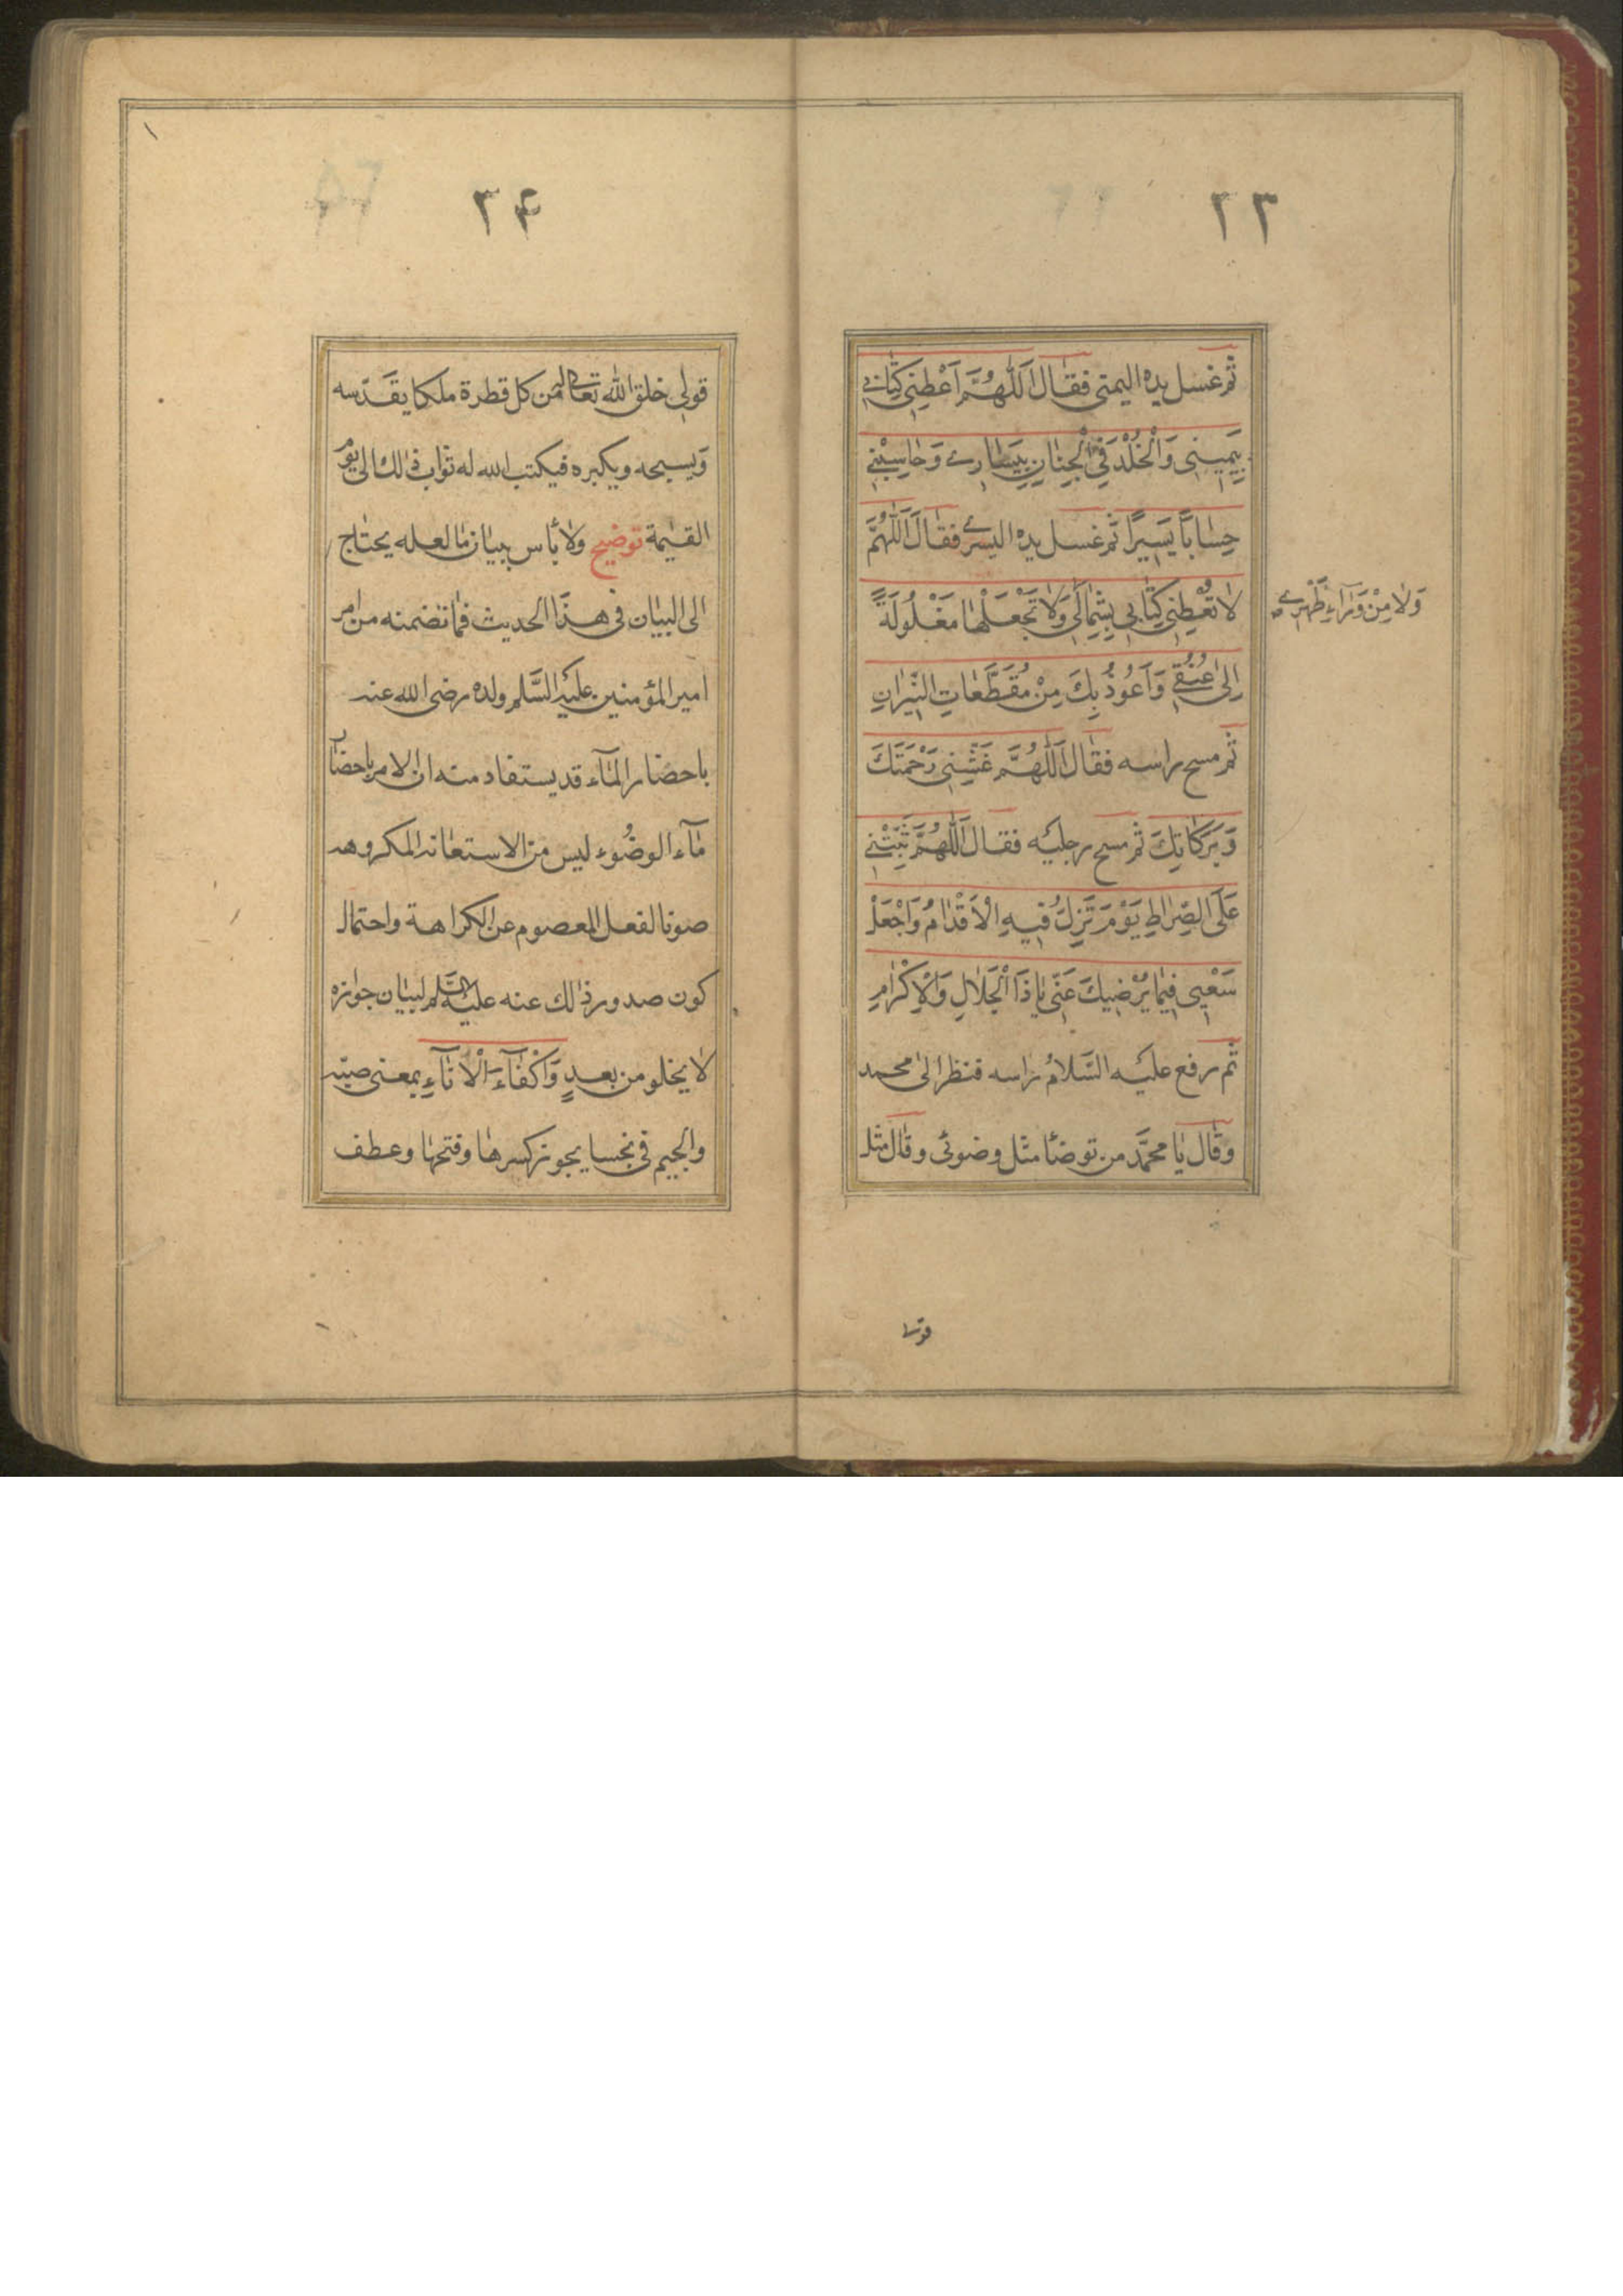 ٢٣
ثم غسل يده اليمنى فقال اَللّٰهُمَّ اَعْطِنِي كِتٰابِي
بِيَمِينِي وَالْخُلْدَ فِي الْجِنٰانِ بِيَسٰارِي وَحٰاسِبْنِي
حِسٰابًا يَسِيرًا ثم غسل يده اليسرى فقال اَللّٰهُمَّ
لٰا تُعْطِنِي كِتٰابِي بِشِمٰالِي وَلٰا تَجْعَلْهٰا مَغْلُولَةً
وَلٰا مِنْ وَرَآءِ ظَهْرِي
اِلىٰ عُنُقِي وَاَعُوذُ بِكَ مِنْ مُقَطَّعٰاتِ النِّيرٰانِ
ثم مسح راسه فقال اَللّٰهُمَّ غَشِّنِي رَحْمَتَكَ
وَبَرَكٰاتِكَ ثم مسح رجليه فقال اَللّٰهُمَّ ثَبِّتْنِي
عَلَى الصِّرٰاطِ يَوْمَ تَزِلُّ فِيهِ الْاَقْدٰامُ وَاجْعَلْ
سَعْيِي فِيمٰا يُرْضِيكَ عَنِّي يٰا ذَا الْجَلٰالِ وَالْاِكْرٰامِ
ثم رفع عليه السَّلامُ راسه فنظر الى محمد
وقال يا محمَّد من توضأ مثل وضوئى وقال مثل
قولى
٢٤
قولى خلق اللّٰه تعالى من كل قطرة ملكا يقدّسه
ويسبحه ويكبره فيكتب الله له ثواب ذلك الى يوم
القيٰمة توضيح ولا بأس ببيان ما لعله يحتاج
الى البيان فى هذا الحديث فما تضمنه من امر
امير المؤمنين عليه السَّلم ولده رضى الله عنه
باحضار المآء قد يستفاد منه ان الامر باحضار
مآء الوضُوء ليس من الاستعانة المكروهه
صونا لفعل المعصوم عن الكراهة واحتمال
كون صدور ذلك عنه عليه السَّلم لبيان جوازه
لا يخلو من بعدٍ وَاكْفٰآء الْانٰآءِ بمعنى صبّه
والجيم فى نجسا يجوز كسرها وفتحها وعطف